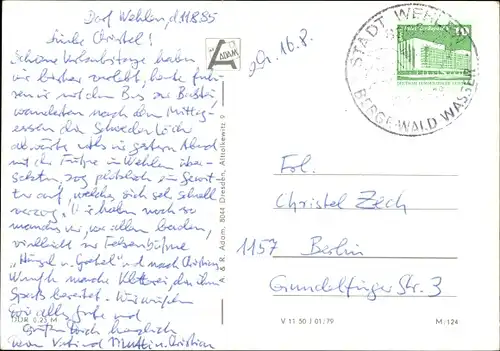 Dorf Wehlen, d 11.8.85
Liebe Christel!
Schöne Urlaubstage haben
wir bisher verlebt, heute fuh-
ren wir mit dem Bus zur Bastei,
wanderten nach dem Mittag-
essen die Schwedenlöcher
abwärts. Als wir gestern Abend
mit der Fähre in Wehlen über-
setzten, zog plötzlich ein Gewit-
ter auf, welches sich sehr schnell
verzog. Wir haben noch so
manches vor, wir alle baden,
vielleicht zur Felsenbühne
"Hänsel u. Gretel" und nach Christians
Wunsch manche Kletterei, die ihm
Spaß bereitet. Wir wünschen
Dir alles Gute und
Grüßen Dich herzlich
von und Mutti u. Christian
DDR 0,25 M
A
ADAM
A. & R. Adam, 8044 Dresden, Altkaitzwitz 9
16.8.
STADT WEHLEN
BERGE WALD WASSER
Frl.
Christel Zech
1157 Berlin
Grundelfinger Str. 3
V 11 50 J 01/79
M/124